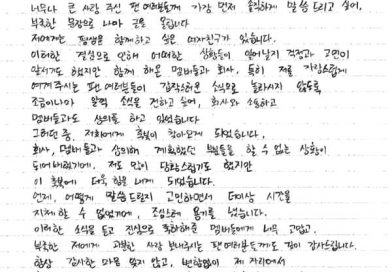 너무나 큰 사랑 주신 팬 여러분들께 가장 먼저 솔직하게 말씀드리고 싶어,
부족한 문장으로 나마 글을 올립니다
저에게는 평생을 함께하고 싶은 여자친구가 있습니다.
이러한 결심으로 인해 어떠한 상황들이 일어날지 걱정과 고민이
앞서기도 했지만 함께 해온 멤버들과 회사, 특히 저를 자랑스럽게
여겨주시는 팬 여러분들이 갑작스러운 소식으로 놀라시지 않도록
조금이나마 일찍 소식을 전하고 싶어, 회사와 소통하고
멤버들과도 상의를 하고 있었습니다
그러던 중, 저희에게 축복이 찾아오게 되었습니다,
회사, 멤버들과 상의해 계획했던 부분들을 할 수 없는 상황이
되어버렸기에, 저도 많이 당황스럽기도 했지만
이 축복에 더욱 힘을 내게 되었습니다.
언제, 어떻게 말씀드릴지 고민하면서 더이상 시간을
지체할 수 없었기에, 조심스레 용기를 냈습니다.
이러한 소식을 듣고 진심으로 축하해준 멤버들에게 너무 고맙고,
부족한 저에게 과분한 사랑 보내주시는 팬 여러분들께도 깊이 감사드립니다.
항상 감사한 마음 잊지 않고, 변함없이 제 자리에서